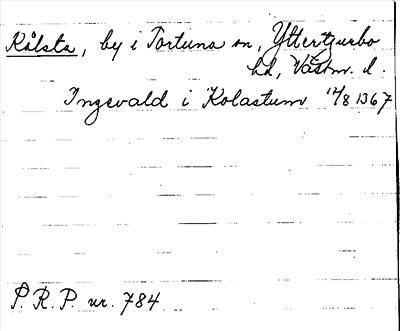 Kålsta, by i Tortuna sn, Yttertjurbo
hd, Västm. l.
Ingevald i Kolastum 17/8 1367
P. R. P. nr. 784